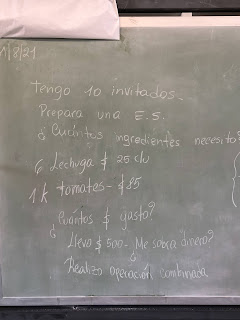 1/8/21
Tengo 10 invitados.
Prepara una E.S.
¿Cuántos ingredientes necesito?
6 Lechuga $ 25 c/u
1 k tomates - $85
Cuántos $ gasto?
¿Llevo $ 500 - Me sobra dinero?
Realizo operación combinada